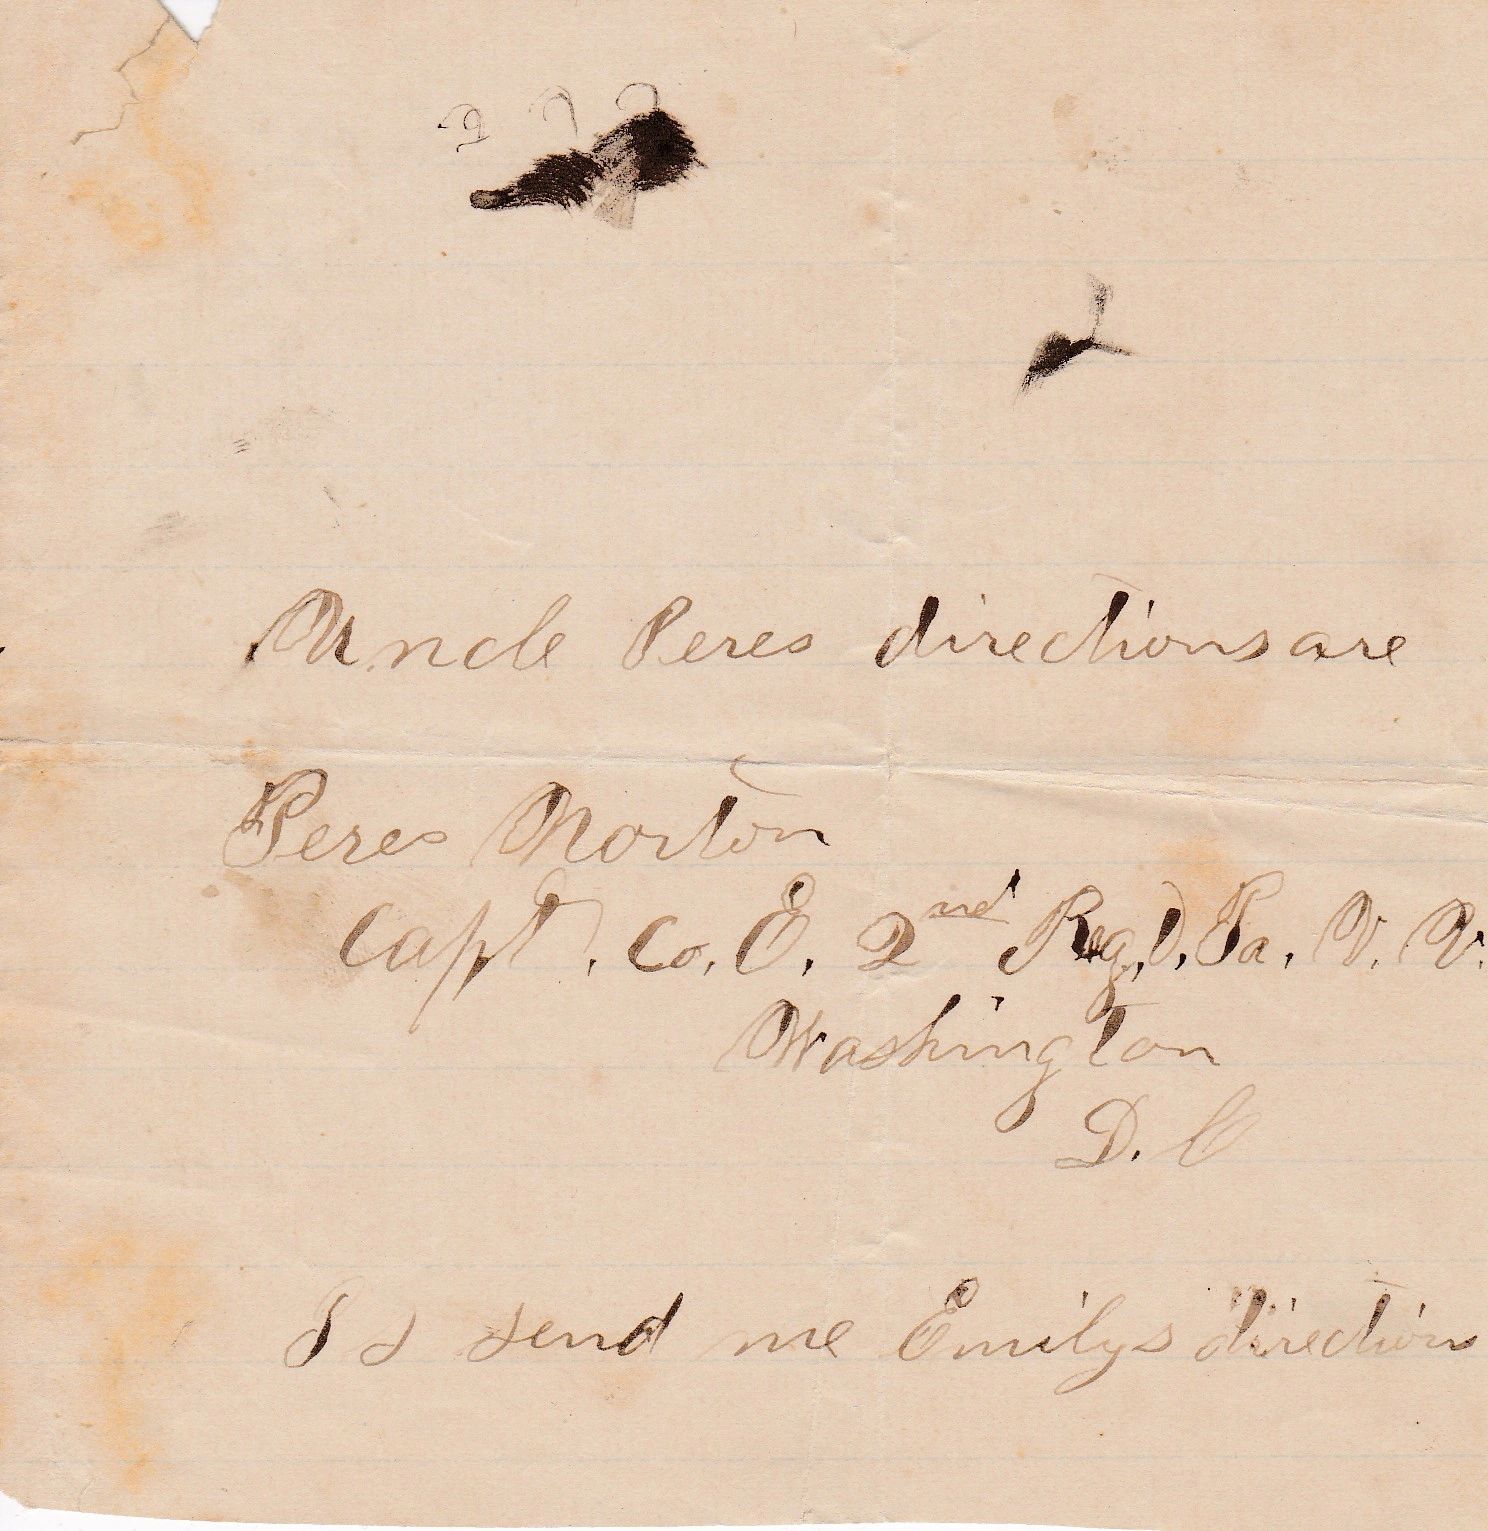 Uncle Peres directions are
Peres Norton
Capt. Co. E. 2nd Reg,t, Pa. V. V.
Washington
D. C
Ps send me Emilys direction